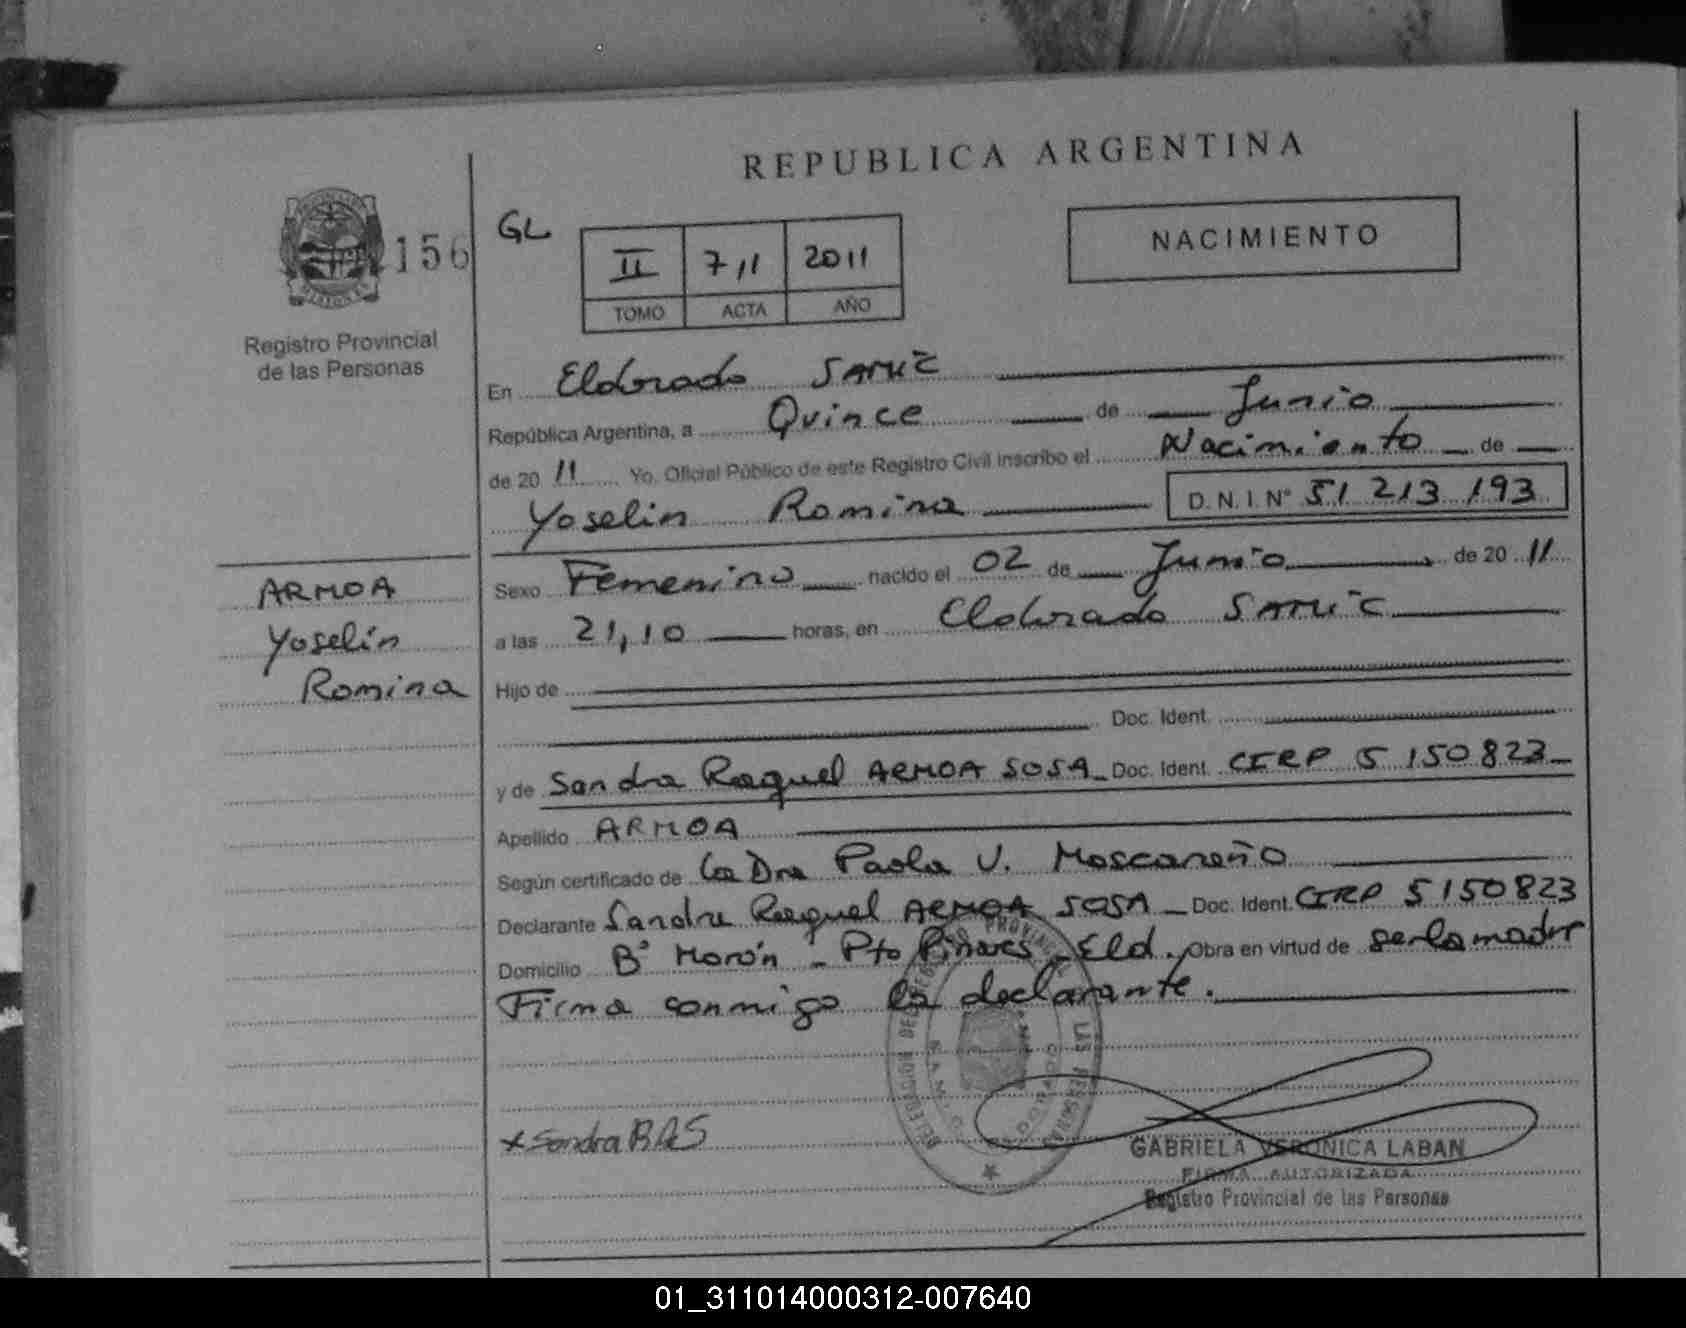 REPUBLICA ARGENTINA
156
GL
II 711 2011
TOMO ACTA AÑO
NACIMIENTO
Registro Provincial
de las Personas
En Eldorado SAMIC
República Argentina, a Quince de Junio
de 20 11 Yo, Oficial Público de este Registro Civil inscribo el Nacimiento de
Yoselin Romina D.N.I. N° 51 213 193
ARMOA
Yoselin
Romina
Sexo Femenino nacido el 02 de Junio de 20 11
a las 21,10 horas, en Eldorado SAMIC
Hijo de
Doc. Ident.
y de Sandra Raquel ARMOA SOSA Doc. Ident. CIRP 5 150823
Apellido ARMOA
Según certificado de La Dra Paola V. Moscareño
Declarante Sandra Raquel ARMOA SOSA Doc. Ident. CIRP 5150823
Domicilio B° Morón - Pto Pinares - Eld. Obra en virtud de ser la madre
Firma conmigo la declarante.
x Sandra R A S
GABRIELA VERONICA LABAN
FIRMA AUTORIZADA
Registro Provincial de las Personas
01_311014000312-007640